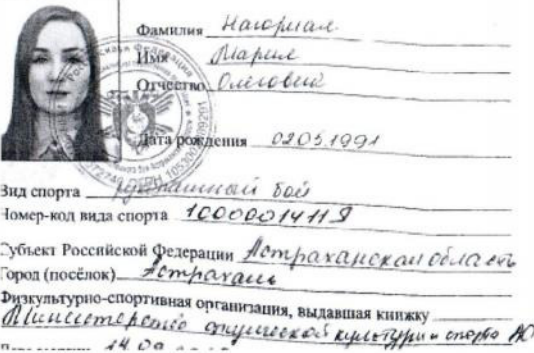 Фамилия Нагорная
Имя Мария
Отчество Олеговна
Дата рождения 02.05.1991
Вид спорта рукопашный бой
Номер-код вида спорта 1000001411Я
Субъект Российской Федерации Астраханская область
Город (посёлок) Астрахань
Физкультурно-спортивная организация, выдавшая книжку
Министерство физической культуры и спорта АО
14.09